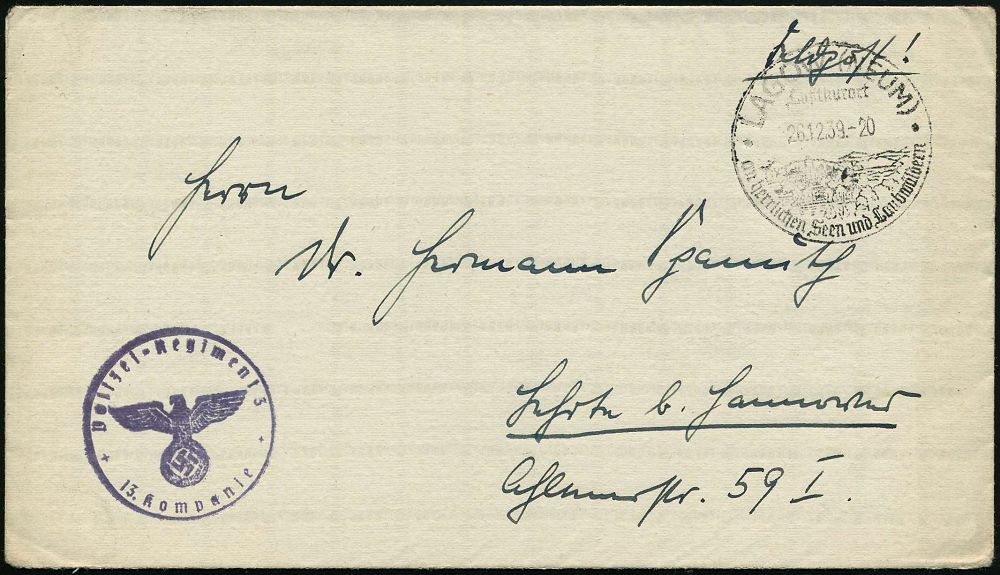 Feldpost!
LAGOW (NEUM)
Luftkurort
26.12.39.-20
an herrlichen Seen und Laubwäldern
Herrn
Dr. Hermann Spanuth
Lehrte b. Hannover
str. 59 I.
Polizei-Regiment 3
13. Kompanie